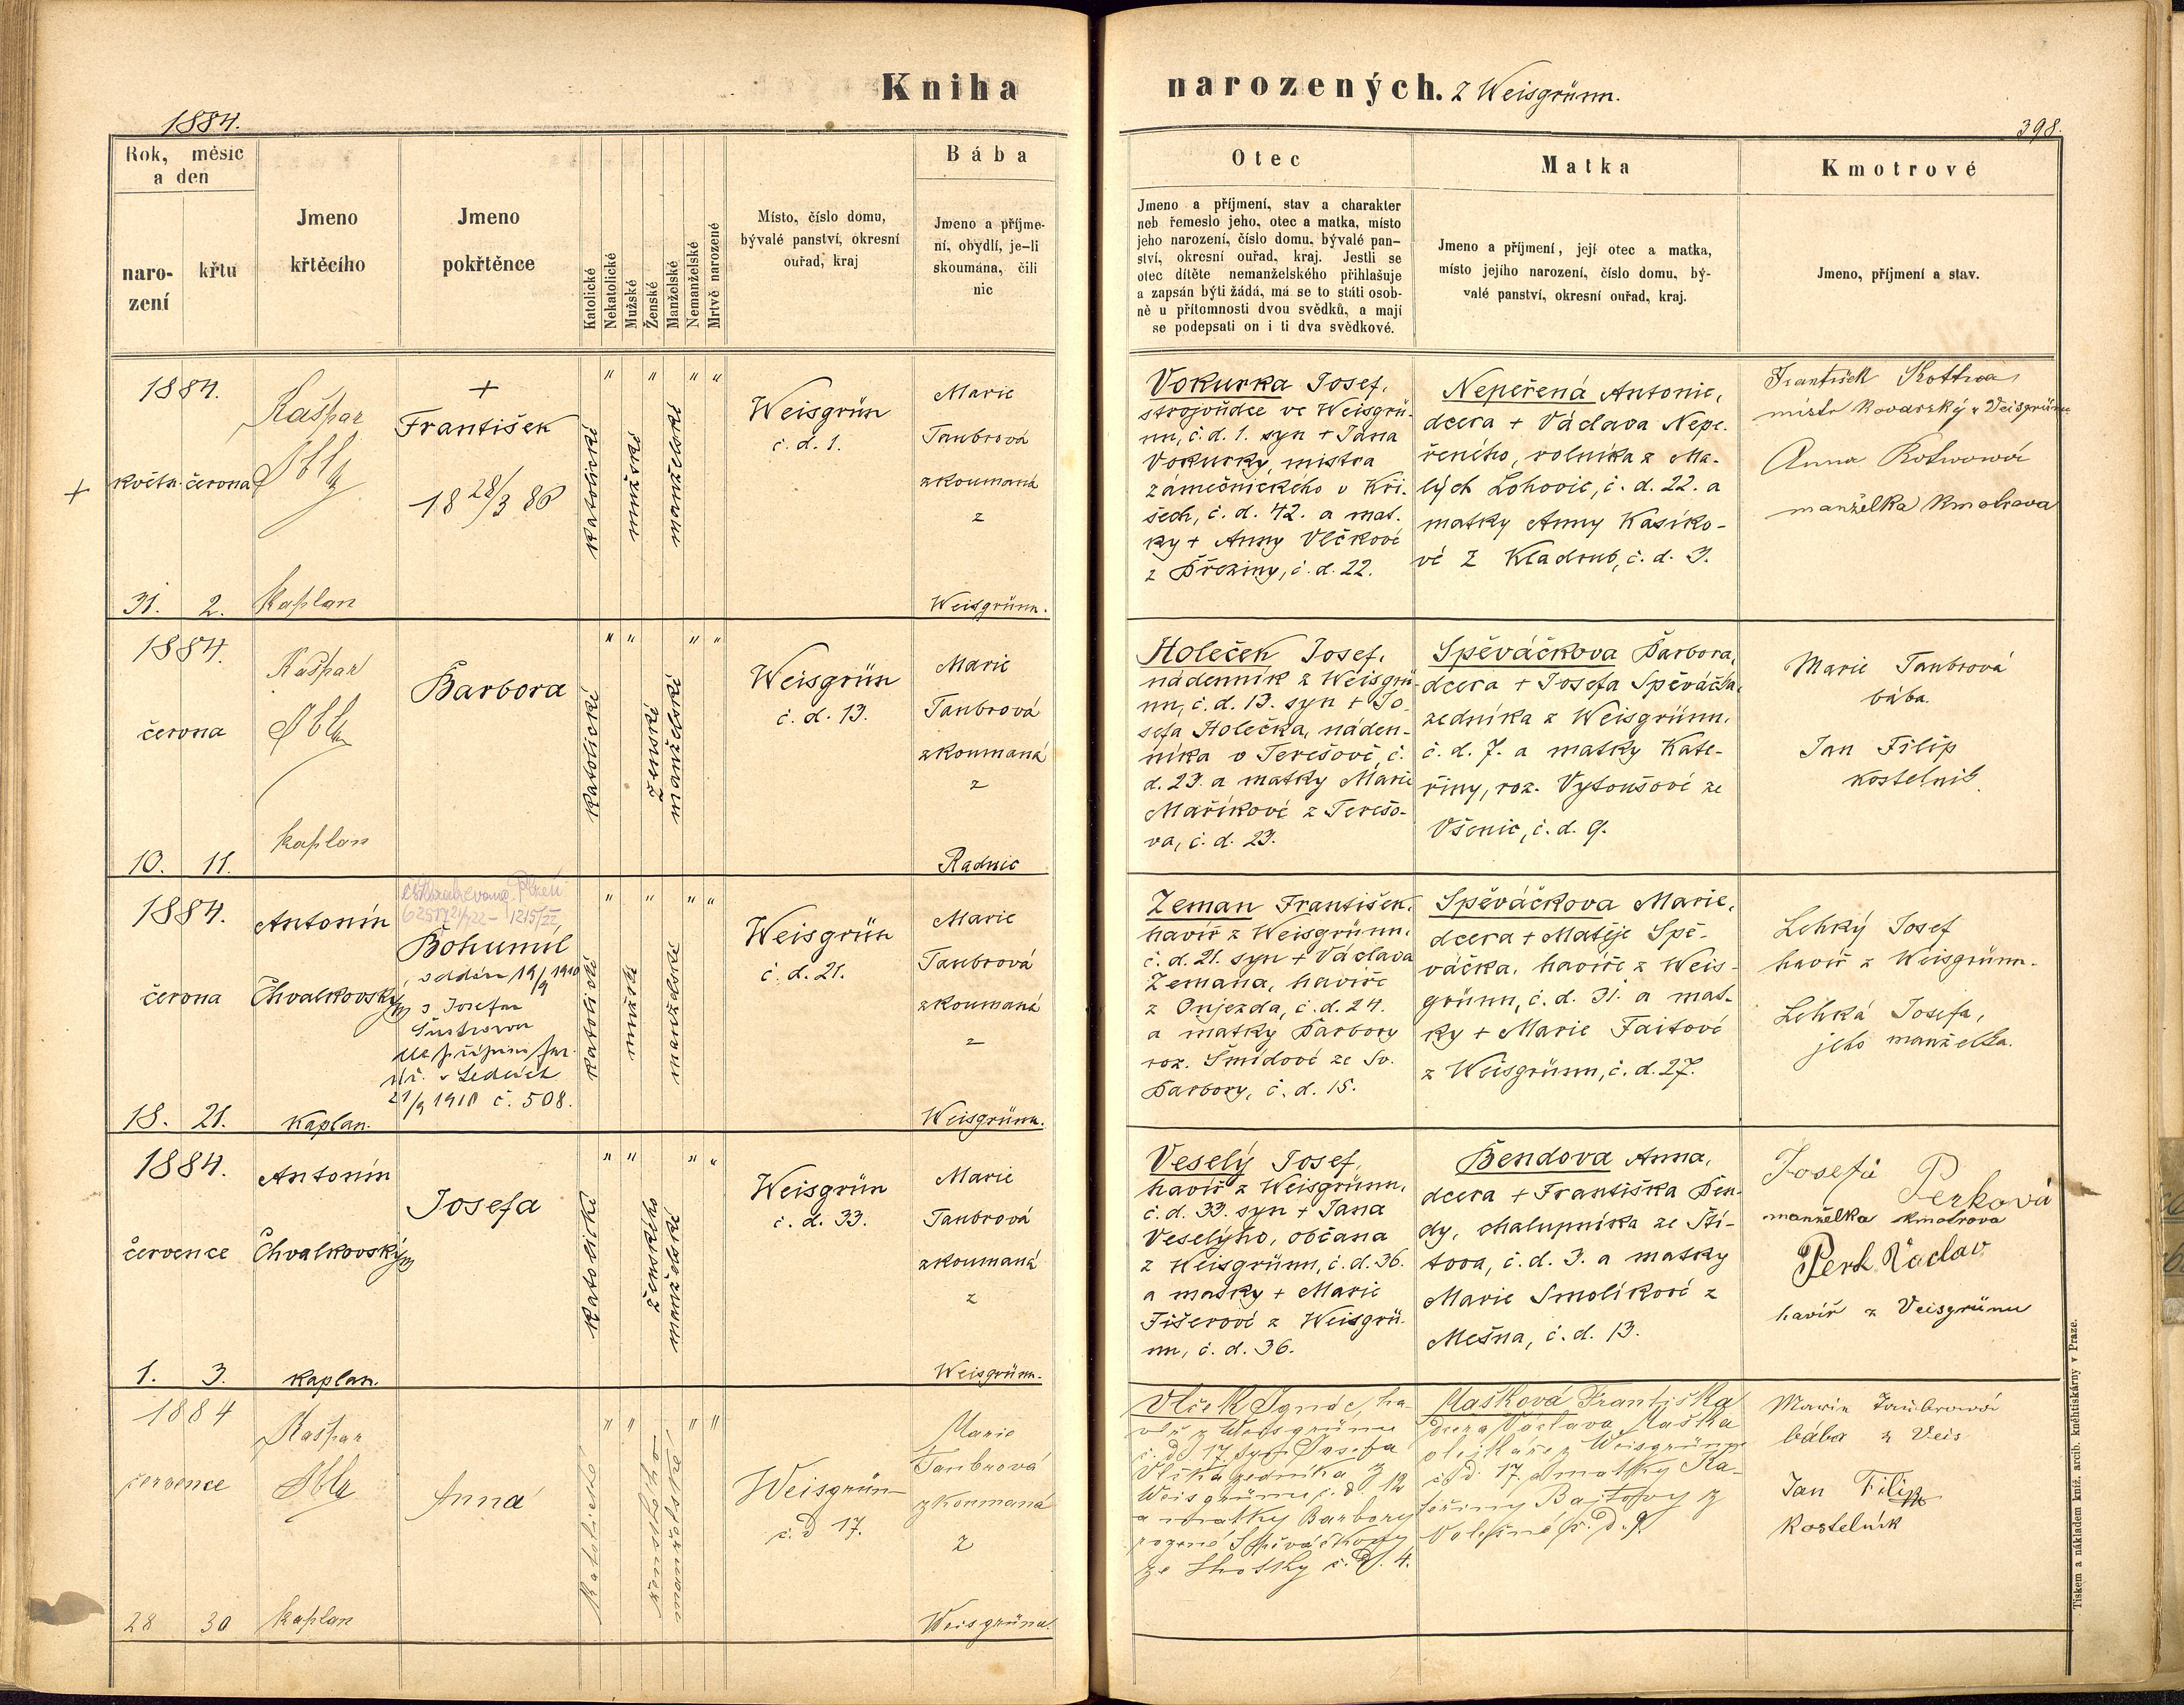 Kniha narozených. Z Weisgrünn.
1884.
398.
Rok, měsíc
a den
naro-
zení
křtu
Jmeno
křtěcího
Jmeno
pokřtěnce
Katolické
Nekatolické
Mužské
Ženské
Manželské
Nemanželské
Mrtvě narozené
Místo, číslo domu,
bývalé panství, okresní
ouřad, kraj
Bába
Jmeno a příjme-
ní, obydlí, je-li
skoumána, čili
nic
Otec
Jmeno a příjmení, stav a charakter
neb řemeslo jeho, otec a matka, místo
jeho narození, číslo domu, bývalé pan-
ství, okresní ouřad, kraj. Jestli se
otec dítěte nemanželského přihlašuje
a zapsán býti žádá, má se to státi osob-
ně u přítomnosti dvou svědků, a mají
se podepsati on i ti dva svědkové.
Matka
Jmeno a příjmení, její otec a matka,
místo jejího narození, číslo domu, bý-
valé panství, okresní ouřad, kraj.
Kmotrové
Jmeno, příjmení a stav.
1884.
+
květn. června
31. 2.
Kašpar
Kaplan
+
František
18 28/3 86
" " " "
katolické
mužské
manželské
Weisgrün
č. d. 1.
Marie
Taubrová
zkoumaná
z
Weisgrünn.
Vokurka Josef,
strojvůdce ve Weisgrü-
nn, č. d. 1. syn + Jana
Vokurky, mistra
zámečnického v Kři-
šech, č. d. 42. a mat-
ky + Anny Vlčkové
z Březiny, č. d. 22.
Nepeřená Antonie,
dcera + Václava Nepe-
řeného, rolníka z Ma-
lých Lohovic, č. d. 22. a
matky Anny Kasíko-
vé z Kladrub, č. d. 3.
František Kottva
mistr kovářský z Veisgrünu
Anna Kotwowá
manželka kmotrova
1884.
června
10. 11.
Kašpar
kaplan
Barbora
" " " "
katolické
ženské
manželské
Weisgrün
č. d. 13.
Marie
Taubrová
zkoumaná
z
Radnic
Holeček Josef,
nádenník z Weisgrü-
nn, č. d. 13. syn + Jo-
sefa Holečka, náden-
níka v Terešově, č.
d. 23. a matky Marie
Maříkové z Terešo-
va, č. d. 23.
Spěváčkova Barbora,
dcera + Josefa Spěváčka,
zedníka z Weisgrünn,
č. d. 7. a matky Kate-
řiny, roz. Vytoušové ze
Všenic, č. d. 9.
Marie Taubrová
bába.
Jan Filip
kostelník.
1884.
června
18. 21.
Antonín
Chvalkovský
kaplan.
Bohumil
oddán 19/9 1910
s Josefou
v Ledcích
21/9 1910 č. 508.
" " " "
katolické
mužské
manželské
Weisgrün
č. d. 21.
Marie
Taubrová
zkoumaná
z
Weisgrünn.
Zeman František,
havíř z Weisgrünn,
č. d. 21. syn + Václava
Zemana, havíře
z Oujezda, č. d. 24.
a matky Barbory
roz. Šmídové ze Sv.
Barbory, č. d. 15.
Spěváčkova Marie,
dcera + Matěje Spě-
váčka, havíře z Weis-
grünn, č. d. 31. a mat-
ky + Marie Faitové
z Weisgrünn, č. d. 27.
Lehký Josef
havíř z Weisgrünn.
Lehká Josefa,
jeho manželka.
1884.
července
1. 3.
Antonín
Chvalkovský
kaplan.
Josefa
" " " "
katolické
ženského
manželské
Weisgrün
č. d. 33.
Marie
Taubrová
zkoumaná
z
Weisgrünn.
Veselý Josef,
havíř z Weisgrünn,
č. d. 33. syn + Jana
Veselýho, občana
z Weisgrünn, č. d. 36.
a matky + Marie
Fišerové z Weisgrü-
nn, č. d. 36.
Bendova Anna,
dcera + Františka Ben-
dy, chalupníka ze Ští-
tova, č. d. 3. a matky
Marie Smolíkové z
Mešna, č. d. 13.
Josefa Perková
manželka kmotrova
Perk Václav
havíř z Veisgrünu
1884
července
28 30
Kašpar
kaplan
Anna
" " " "
katolického
ženského
manželské
Weisgrün
č. d 17.
Marie
Taubrová
zkoumaná
z
Weisgrünu.
Vlček Ignác, ha-
víř z Weisgrünu
č. d. 17. syn Josefa
Vlčka zedníka z
Weisgrünu č. d. 12
a matky Barbory
rozené Spěváčkovy
ze Lhotky č. d. 4.
Mašková Františka
dcera Václava Maška
z Weisgrünu
č. d. 17. a matky Ka-
teřiny
č. d. 9.
Marie Taubrowá
bába z Veis
Jan Filip
kostelník
Tiskem a nákladem kníž. arcib. knihtiskárny v Praze.